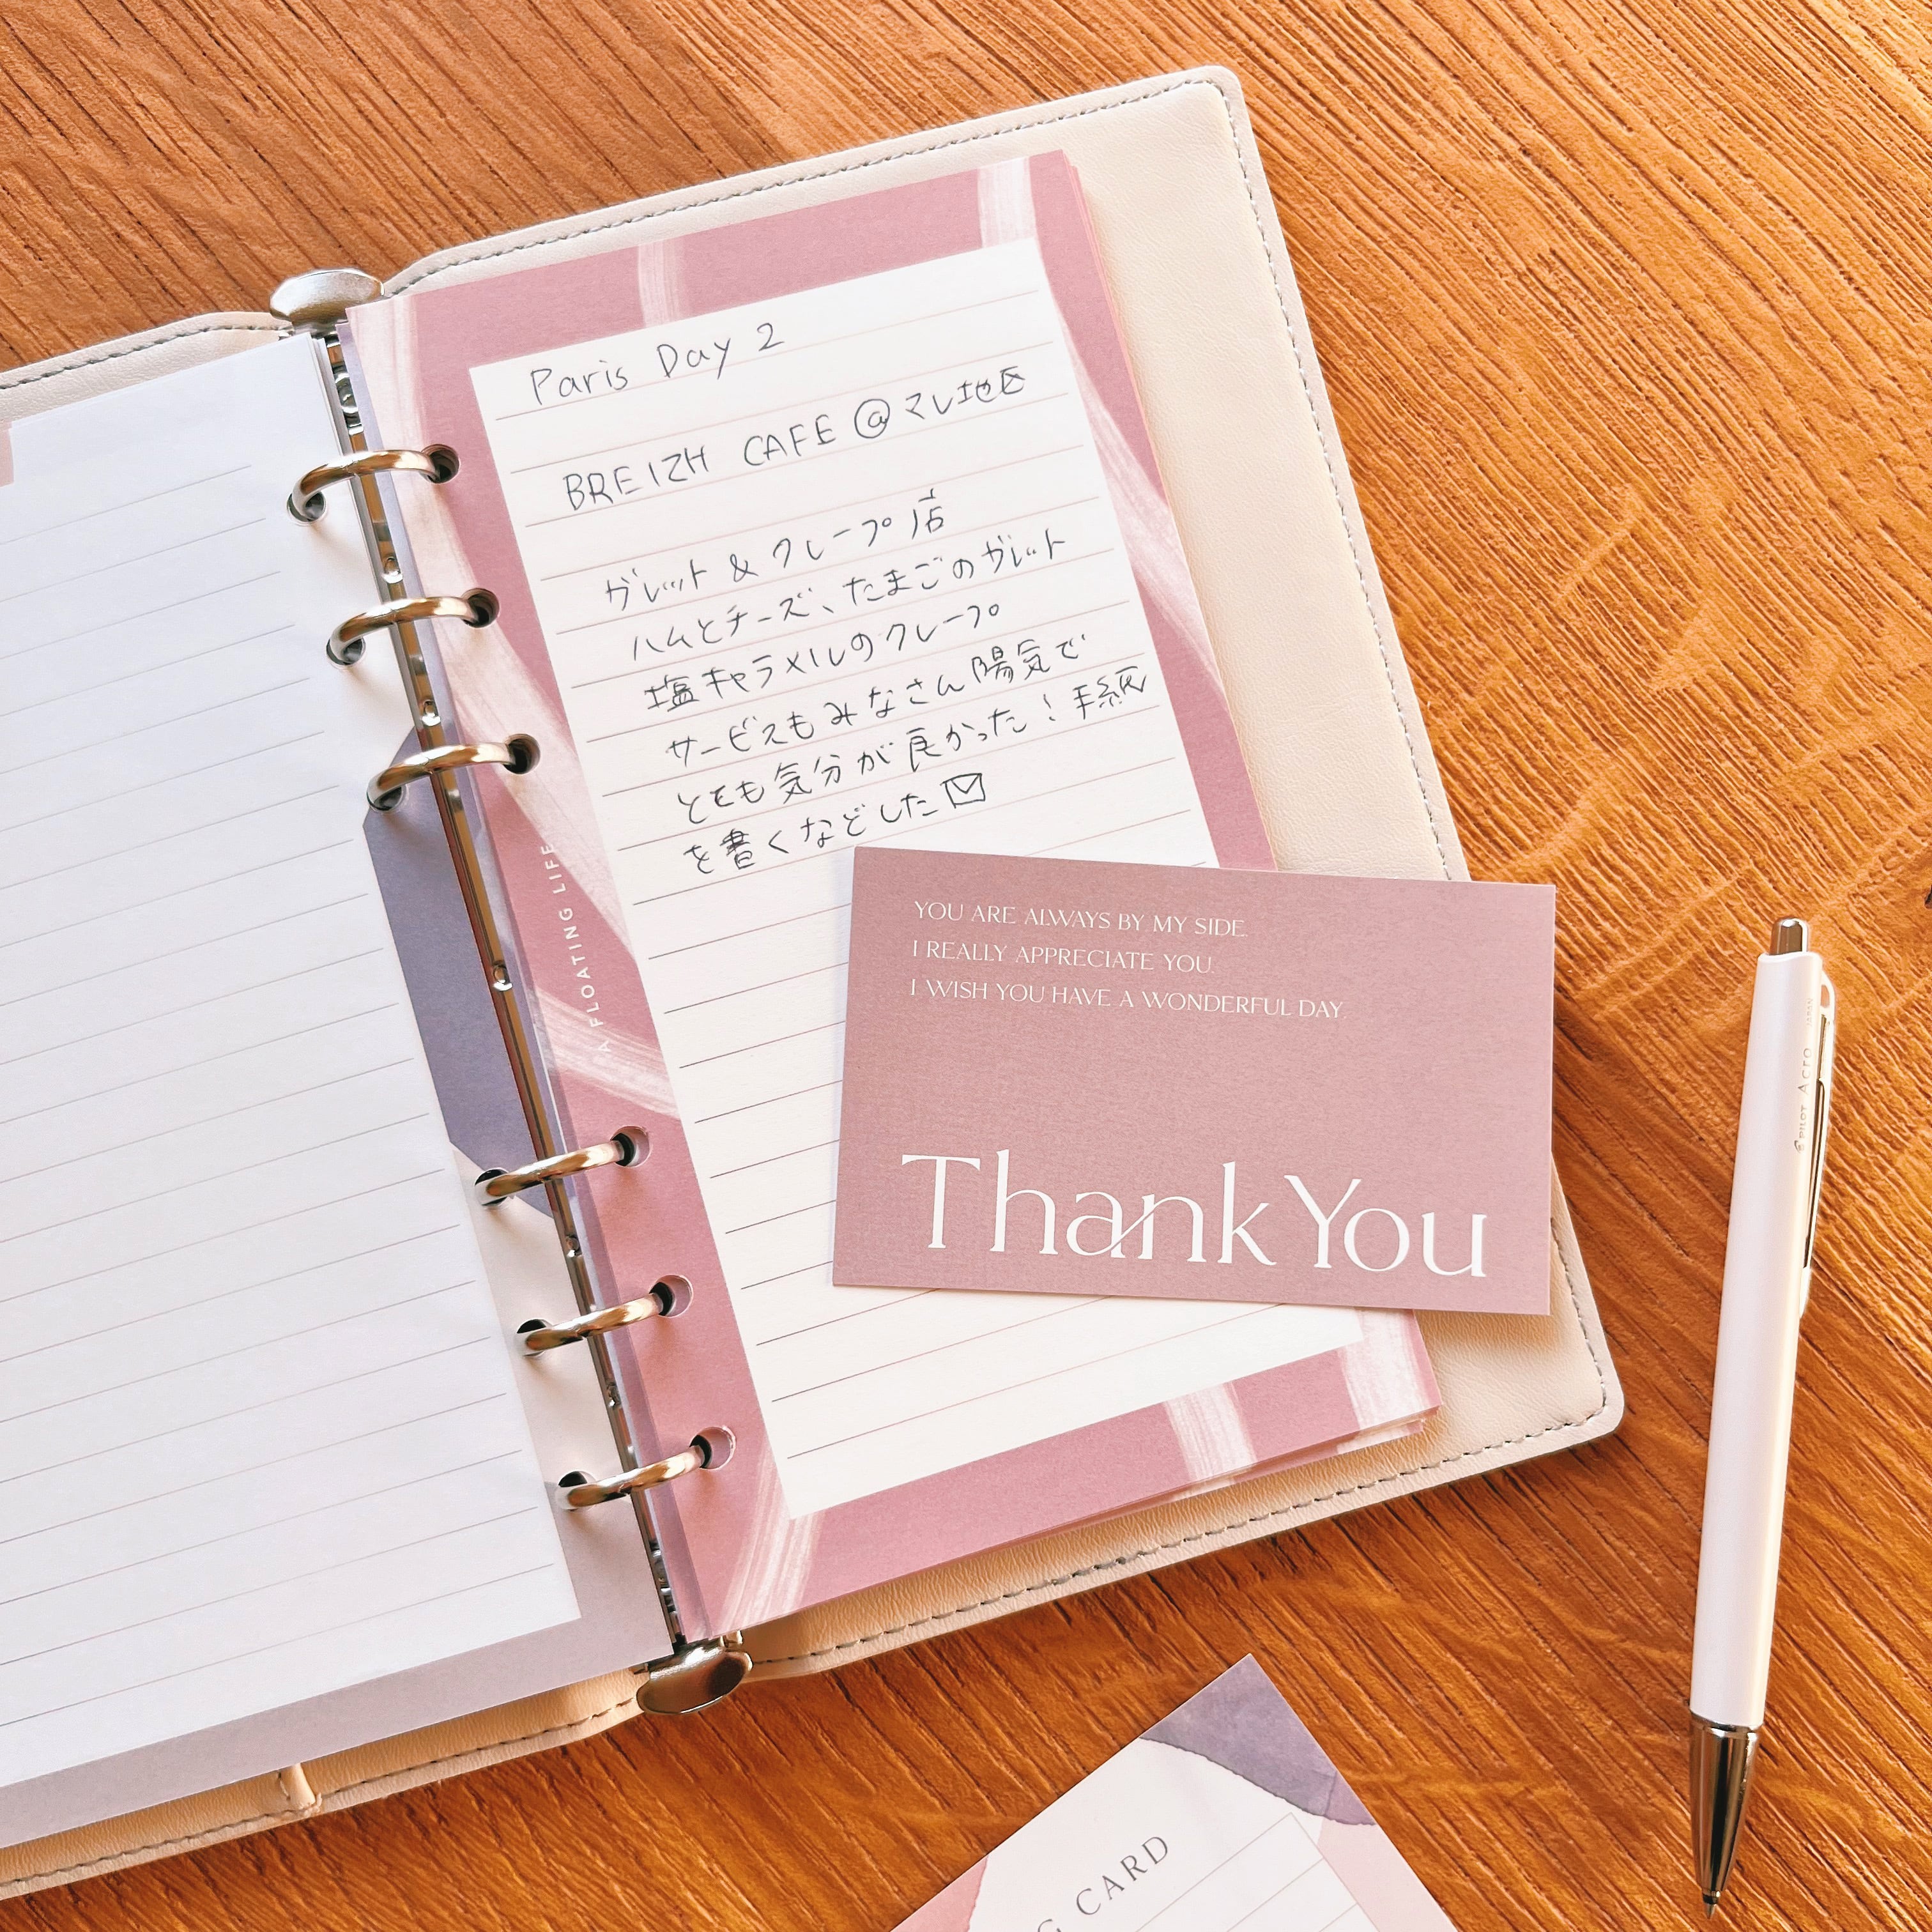 Paris Day 2
BREIZH CAFE @マレ地区
ガレット & クレープ店
ハムとチーズ、たまごのガレット
塩キャラメルのクレープ
サービスもみなさん陽気で
とても気分が良かった! 手紙
を書くなどした
A FLOATING LIFE
YOU ARE ALWAYS BY MY SIDE.
I REALLY APPRECIATE YOU.
I WISH YOU HAVE A WONDERFUL DAY.
Thank You
PILOT Acro JAPAN
CARD